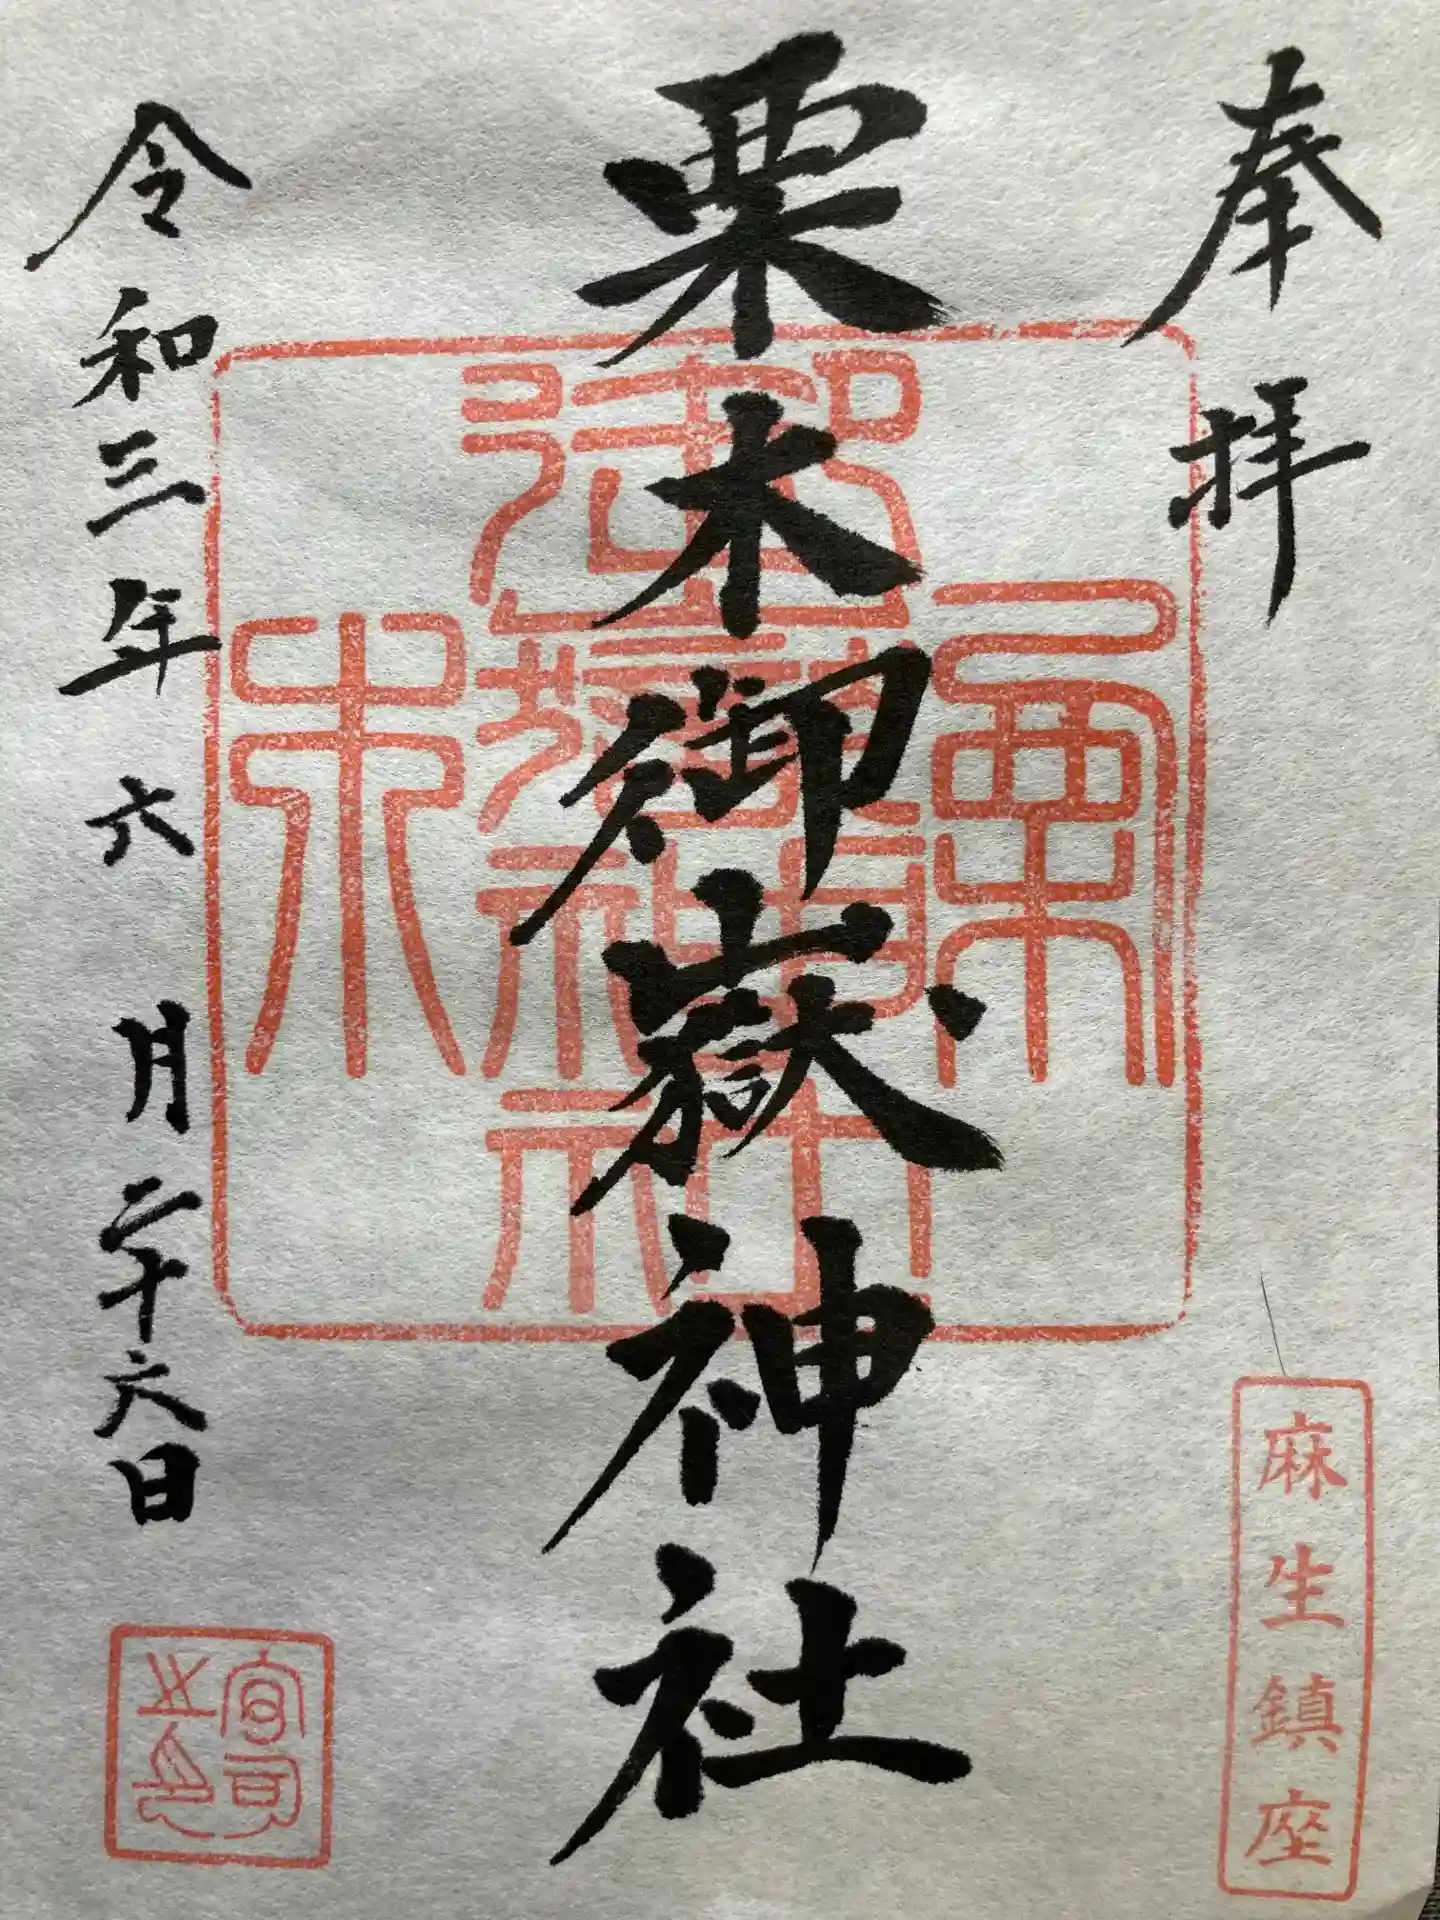 奉拝
麻生鎮座
栗木御嶽神社
令和三年六月二十六日
宮司之印